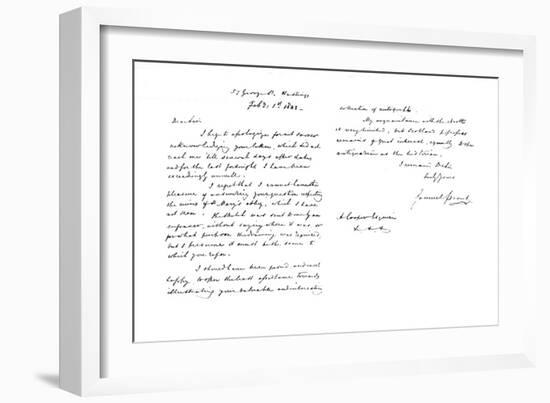 George St. Hastings
Feb
Dear Sir
I beg to apologize for not sooner
acknowledging your letter, which did not
reach me till several days after date,
and for the last fortnight I have been
exceedingly unwell.
I regret that I cannot have the
pleasure of answering your question respecting
the ruins of St Mary's Abbey, which I have
not seen. The sketch was sent to me by an
engraver, without saying where it was or
for what purpose the drawing was required,
but I presume it must be the same to
which you refer.
I should have been proud, and most
happy to offer the least assistance towards
illustrating your valuable and interesting
collection of antiquities.
My acquaintance with the North
is very limited, but Scotland possesses
remains of great interest, equally to the
antiquarian as the historian.
I remain D Sir
truly yours
Samuel Prout
A Cooper Esquire